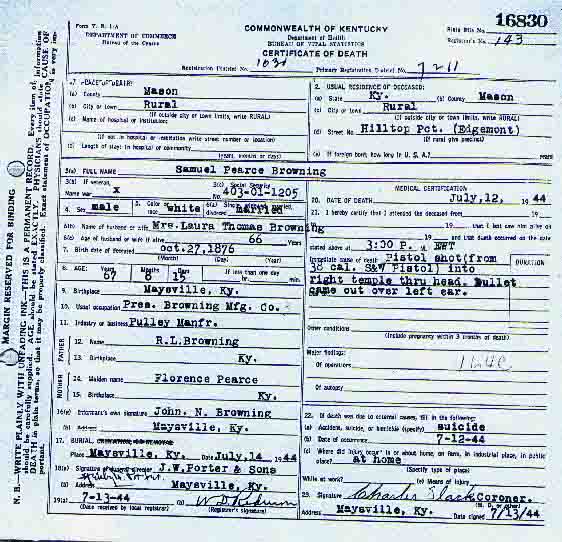 16830
Form V. S. 1-A
COMMONWEALTH OF KENTUCKY
State File No.
DEPARTMENT OF COMMERCE
Department of Health
Bureau of the Census
BUREAU OF VITAL STATISTICS
Registrar's No. 143
CERTIFICATE OF DEATH
Registration District No. 1030 Primary Registration District No. 7211
1. PLACE OF DEATH:
(a) County Mason
(b) City or town Rural
(If outside city or town limits, write RURAL)
(c) Name of hospital or institution:
(If not in hospital or institution write street number or location)
(d) Length of stay: In hospital or community
(years, months or days)
2. USUAL RESIDENCE OF DECEASED:
(a) State Ky. (b) County Mason
(c) City or town Rural
(If outside city or town limits, write RURAL)
(d) Street No. Hilltop Pct. (Edgemont)
(If rural give precinct)
(e) If foreign born, how long in U. S. A.? years
3(a) FULL NAME Samuel Pearce Browning
3(b) If veteran, Name war x
3(c) Social Security No. 403-01-1205
4. Sex male
5. Color or race white
6(a) Single, widowed, married, married
6(b) Name of husband or wife Mrs. Laura Thomas Browning
6(c) Age of husband or wife if alive 66 Years
7. Birth date of deceased oct.27,1876
(Month) (Day) (Year)
8. AGE: Years 67 Months 8 Days 15 If less than one day
hr. min.
9. Birthplace Maysville, Ky.
10. Usual occupation Pres. Browning Mfg. Co.
11. Industry or business Pulley Manfr.
FATHER
12. Name R.L.Browning
13. Birthplace Ky.
MOTHER
14. Maiden name Florence Pearce
15. Birthplace Ky.
16(a) Informant's own signature John. N. Browning
(b) Address Maysville, Ky.
17. BURIAL,
Place Maysville, Ky. Date July,14 1944
18(a) Signature of funeral director J.W.Porter & Sons
(b) Address Maysville, Ky.
19(a) 7-13-44
(Date received by local registrar)
(Registrar's signature)
MEDICAL CERTIFICATION
20. DATE OF DEATH July,12, 1944
21. I hereby certify that I attended the deceased from 19
19 that I last saw him alive on
19 and that death occurred on the date
stated above at 3:00 P. M. EWT
Immediate cause of death Pistol shot(from
DURATION
38 cal. S&W Pistol) into
right temple thru head. Bullet
came out over left ear.
Other conditions
(Include pregnancy within 3 months of death)
Major findings:
Of operations
Of autopsy
22. If death was due to external causes, fill in the following:
(a) Accident, suicide, or homicide (specify) suicide
(b) Date of occurrence 7-12-44
(c) Where did injury occur? In or about home, on farm, in industrial place, in public
place? at home
(Specify type of place)
While at work? (e) Means of injury
23. Signature Charles Slack Coroner.
(M. D. or other)
Address Maysville, Ky. Date signed 7/13/44
MARGIN RESERVED FOR BINDING
N. B.—WRITE PLAINLY WITH UNFADING INK—THIS IS A PERMANENT RECORD. Every item of information
should be carefully supplied. AGE should be stated EXACTLY. PHYSICIANS should state CAUSE OF
DEATH in plain terms, so that it may be properly classified. Exact statement of OCCUPATION is very im-
portant.